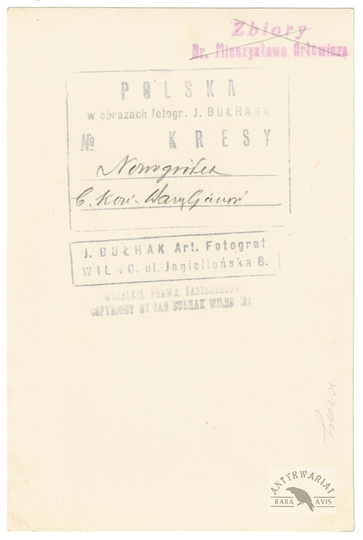 Zbiory
Dr. Mieczysława Orłowicza
POLSKA
w obrazach fotogr. J. BUŁHAKA
№ KRESY
Nowogródek
J. BUŁHAK Art. Fotograf
WILNO. ul. Jagiellońska 8.
WSZELKIE PRAWA ZASTRZEŻONE
COPYRIGHT BY JAN BUŁHAK WILNO
ANTYKWARIAT
RARA AVIS